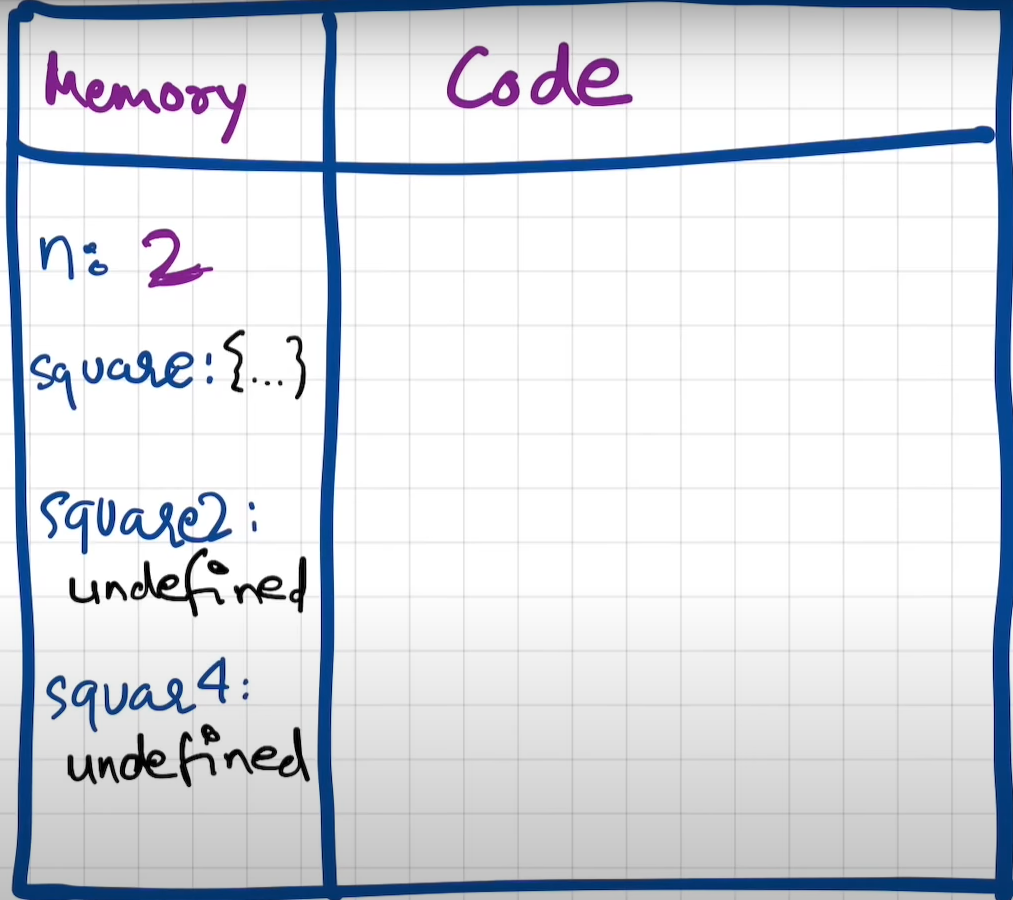 Memory
Code
n: 2
square: {...}
square2:
undefined
squar4:
undefined